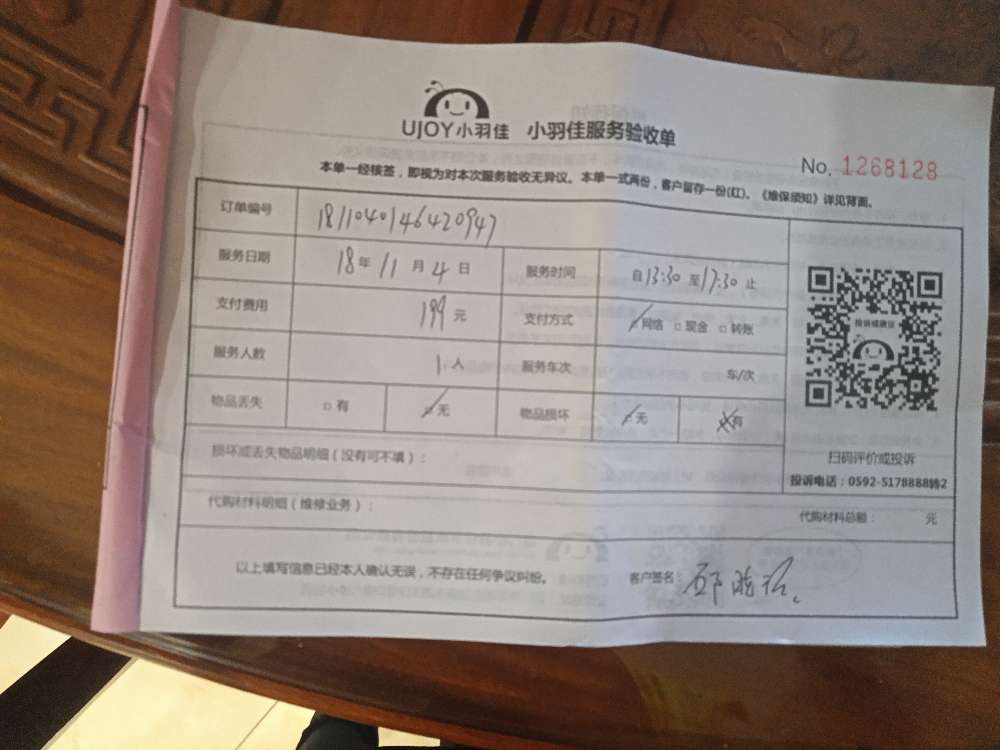 UJOY小羽佳 小羽佳服务验收单
No. 1268128
本单一经核签，即视为对本次服务验收无异议。本单一式两份，客户留存一份(红)。《维保须知》详见背面。
订单编号 181104014642094
服务日期 18年 11月 4日 服务时间 自13:30至17:30止
支付费用 199元 支付方式 ☑网络 □现金 □转账
服务人数 1人 服务车次 车/次
物品丢失 □有 ☑无 物品损坏 ☑无 有
投诉或建议
扫码评价或投诉
投诉电话：0592-5178888转2
损坏或丢失物品明细（没有可不填）：
代购材料明细（维修业务）： 代购材料总额： 元
以上填写信息已经本人确认无误，不存在任何争议纠纷。 客户签名：